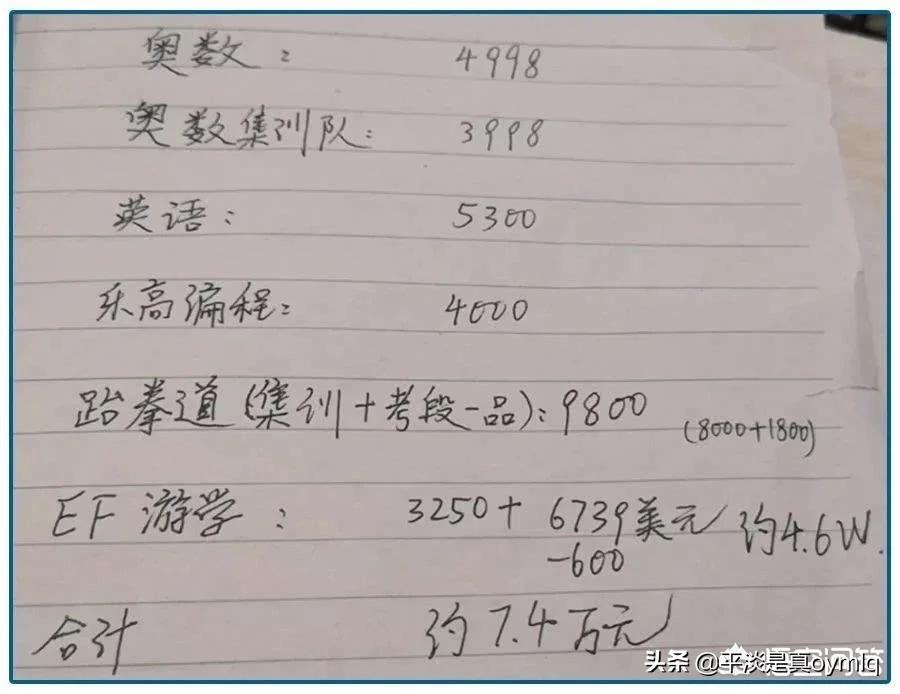 奥数: 4998
奥数集训队: 3998
英语: 5300
乐高编程: 4000
跆拳道(集训+考段一品): 9800
(8000+1800)
EF 游学: 3250+ 6739美元 约4.6W.
-600
合计 约7.4万元
悟空问答
头条 @平淡是真oymlq